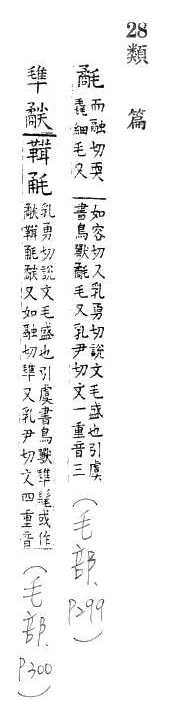 28 類 篇
而融切耎
毳細毛又
如容切又乳勇切說文毛盛也引虞
書鳥獸毛又乳尹切文一重音三
(毛部. P299)
乳勇切說文毛盛也引虞書鳥獸髦或作
又如融切又乳尹切文四重音
(毛部. P300)